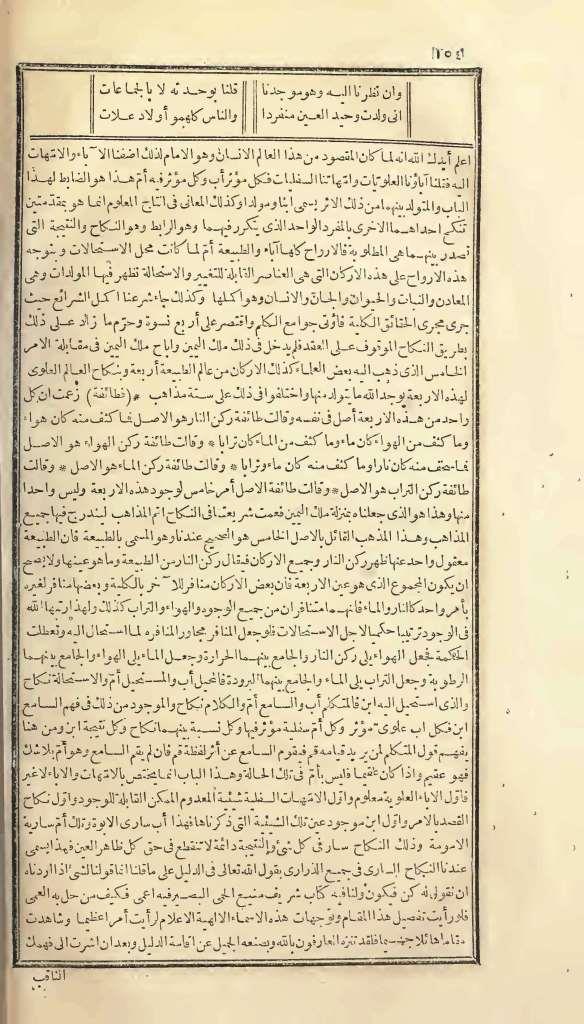 ١٥٤
وان نظرنا اليه وهو موجدنا قلنا بوحدته لا بالجماعات
انى ولدت وحيد العين منفردا والناس كلهمو أولاد علات
اعلم أيدك الله انه لما كان المقصود من هذا العالم الانسان وهو الامام لذلك اضفنا الآباء والامهات
اليه فقلنا آباؤنا العلويات وامهاتنا السفليات فكل مؤثر أب وكل مؤثر فيه أم هذا هو الضابط لهذا
الباب والمتولد بينهما من ذلك الاثر يسمى ابنا ومولدا وكذلك المعانى فى انتاج العلوم انما هو بمقدمتين
تنكح احداهما الاخرى بالمفرد الواحد الذى يتكرر فيهما وهو الرابط وهو النكاح والنتيجة التى
تصدر بينهما هى المطلوبة فالارواح كلها آباء والطبيعة أم لما كانت محل الاستحالات وبتوجه
هذه الارواح على هذه الاركان التى هى العناصر القابلة للتغيير والاستحالة تظهر فيها المولدات وهى
المعادن والنبات والحيوان والجان والانسان وهو اكملها وكذلك جاء شرعنا اكمل الشرائع حيث
جرى مجرى الحقائق الكلية فأوتى جوامع الكلم واقتصر على أربع نسوة وحرم ما زاد على ذلك
بطريق النكاح الموقوف على العقد فلم يدخل فى ذلك ملك اليمين واباح ملك اليمين فى مقابلة الامر
الخامس الذى ذهب اليه بعض العلماء كذلك الاركان من عالم الطبيعة أربعة وبنكاح العالم العلوى
لهذه الاربعة يوجد الله ما يتولد منها واختلفوا فى ذلك على ستة مذاهب * (فطائفة) زعمت ان كل
واحد من هذه الاربعة أصل فى نفسه وقالت طائفة ركن النار هو الاصل فما كثف منه كان هواء
وما كثف من الهواء كان ماء وما كثف من الماء كان ترابا * وقالت طائفة ركن الهواء هو الاصل
فما سخف منه كان نارا وما كثف منه كان ماء وترابا * وقالت طائفة ركن الماء هو الاصل * وقالت
طائفة ركن التراب هو الاصل * وقالت طائفة الاصل أمر خامس لوجود هذه الاربعة وليس واحدا
منها وهذا هو الذى جعلناه بمنزلة ملك اليمين فعمت شريعتنا فى النكاح اتم المذاهب ليندرج فيها جميع
المذاهب وهذا المذهب القائل بالاصل الخامس هو الصحيح عندنا وهو المسمى بالطبيعة فان الطبيعة
معقول واحد عنها ظهر ركن النار وجميع الاركان فيقال ركن النار من الطبيعة وما هو عينها ولا يصح
ان يكون المجموع الذى هو عين الاربعة فان بعض الاركان منافر للآخر بالكلية وبعضها منافر لغيره
بأمر واحد كالنار والماء فانهما متنافران من جميع الوجوه والهواء والتراب كذلك ولهذا رتبها الله
فى الوجود ترتيبا حكميا لاجل الاستحالات فلو جعل المنافر مجاور المنافره لما استحال اليه وتعطلت
الحكمة فجعل الهواء يلى ركن النار والجامع بينهما الحرارة وجعل الماء يلى الهواء والجامع بينهما
الرطوبة وجعل التراب يلى الماء والجامع بينهما البرودة فالمحيل أب والمستحيل أم والاستحالة نكاح
والذى استحيل اليه ابن فالمتكلم أب والسامع أم والكلام نكاح والموجود من ذلك فى فهم السامع
ابن فكل اب علوى مؤثر وكل أم سفلية مؤثر فيها وكل نسبة بينهما نكاح وكل نتيجة ابن ومن هنا
يفهم قول المتكلم لمن يريد قيامه قم فيقوم السامع عن أثر لفظة قم فان لم يقم السامع وهو أم بلا شك
فهو عقيم واذا كان عقيما فليس بأم فى تلك الحالة وهذا الباب انما يختص بالامهات والاباء لا غير
فأول الاباء العلوية معلوم واول الامهات السفلية شيئية المعدوم الممكن القابلة للوجود واول نكاح
القصد بالامر واول ابن موجود عين تلك الشيئية التى ذكرناها فهذا أب سارى الابوة وتلك أم سارية
الامومة وذلك النكاح سار فى كل شئ والنتيجة دائمة لا تنقطع فى حق كل ظاهر العين فهذا يسمى
عندنا النكاح السارى فى جميع الذرارى يقول الله تعالى فى الدليل على ما قلنا انما قولنا لشئ اذا اردناه
ان نقول له كن فيكون ولنا فيه كتاب شريف منيع الحمى البصير فيه اعمى فكيف من حل به العمى
فلو رأيت تفصيل هذا المقام وتوجهات هذه الاسماء الالهية الاعلام لرأيت أمرا عظيما وشاهدت
مقاما هائلا جسيما فلقد تنزه العارفون بالله وبصنعه الجميل عن اقامة الدليل وبعد ان اشرت الى فهمك
الثاقب